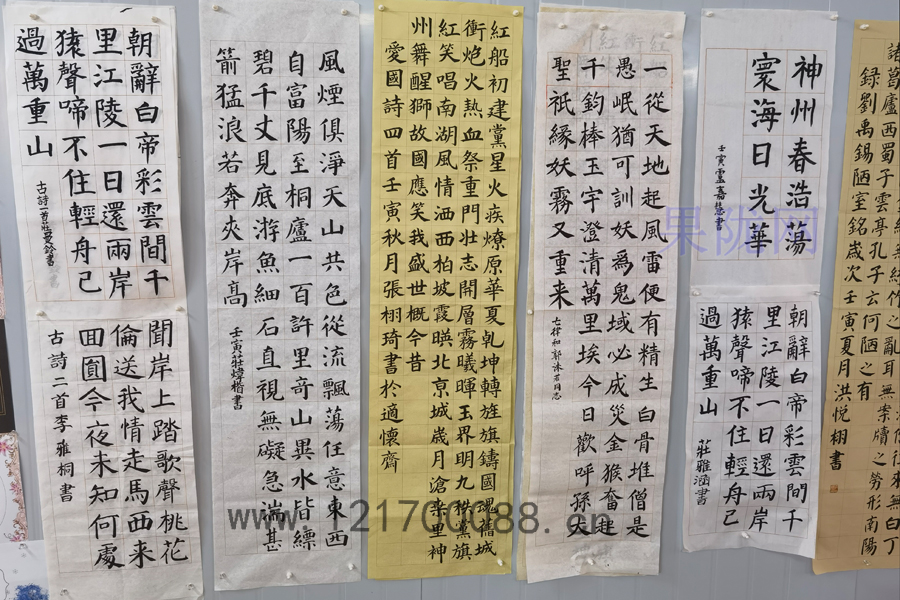 朝辭白帝彩雲間千
里江陵一日還兩岸
猿聲啼不住輕舟已
過萬重山
古詩一首莊曼鈴書
聞岸上踏歌聲桃花
倫送我情走馬西来
回圓今夜未知何處
古詩二首李雅桐書
風煙俱淨天山共色從流飄蕩任意東西
自富陽至桐廬一百許里奇山異水皆縹
碧千丈見底游魚細石直視無礙急湍甚
箭猛浪若奔夾岸高
壬寅莊煒楷書
紅船初建黨星火疾燎原華夏乾坤轉旌旗鑄國瑰舊城
衝炮火熱血祭重門壯志開層霧曦暉玉界明九秩黨旗
紅笑唱南湖風情洒西柏坡霞暎北京城歲月滄桑里神
州舞醒獅故國應笑我盛世概今昔
愛國詩四首壬寅秋月張栩琦書於適懷齋
一從天地起風雷便有精生白骨堆僧是
愚氓猶可訓妖爲鬼域必成災金猴奮起
千鈞棒玉宇澄清萬里埃今日歡呼孫大
聖祇緣妖霧又重来
七律和郭沫若同志
神州春浩蕩
寰海日光華
壬寅嘉慈書
朝辭白帝彩雲間千
里江陵一日還兩岸
猿聲啼不住輕舟已
過萬重山
莊雅涵書
来無白丁
無絲竹之亂耳無案牘之勞形南陽
諸葛廬西蜀子雲亭孔子云何陋之有
錄劉禹錫陋室銘歲次壬寅夏月洪悦栩書
果陇网
www.121700088.cn